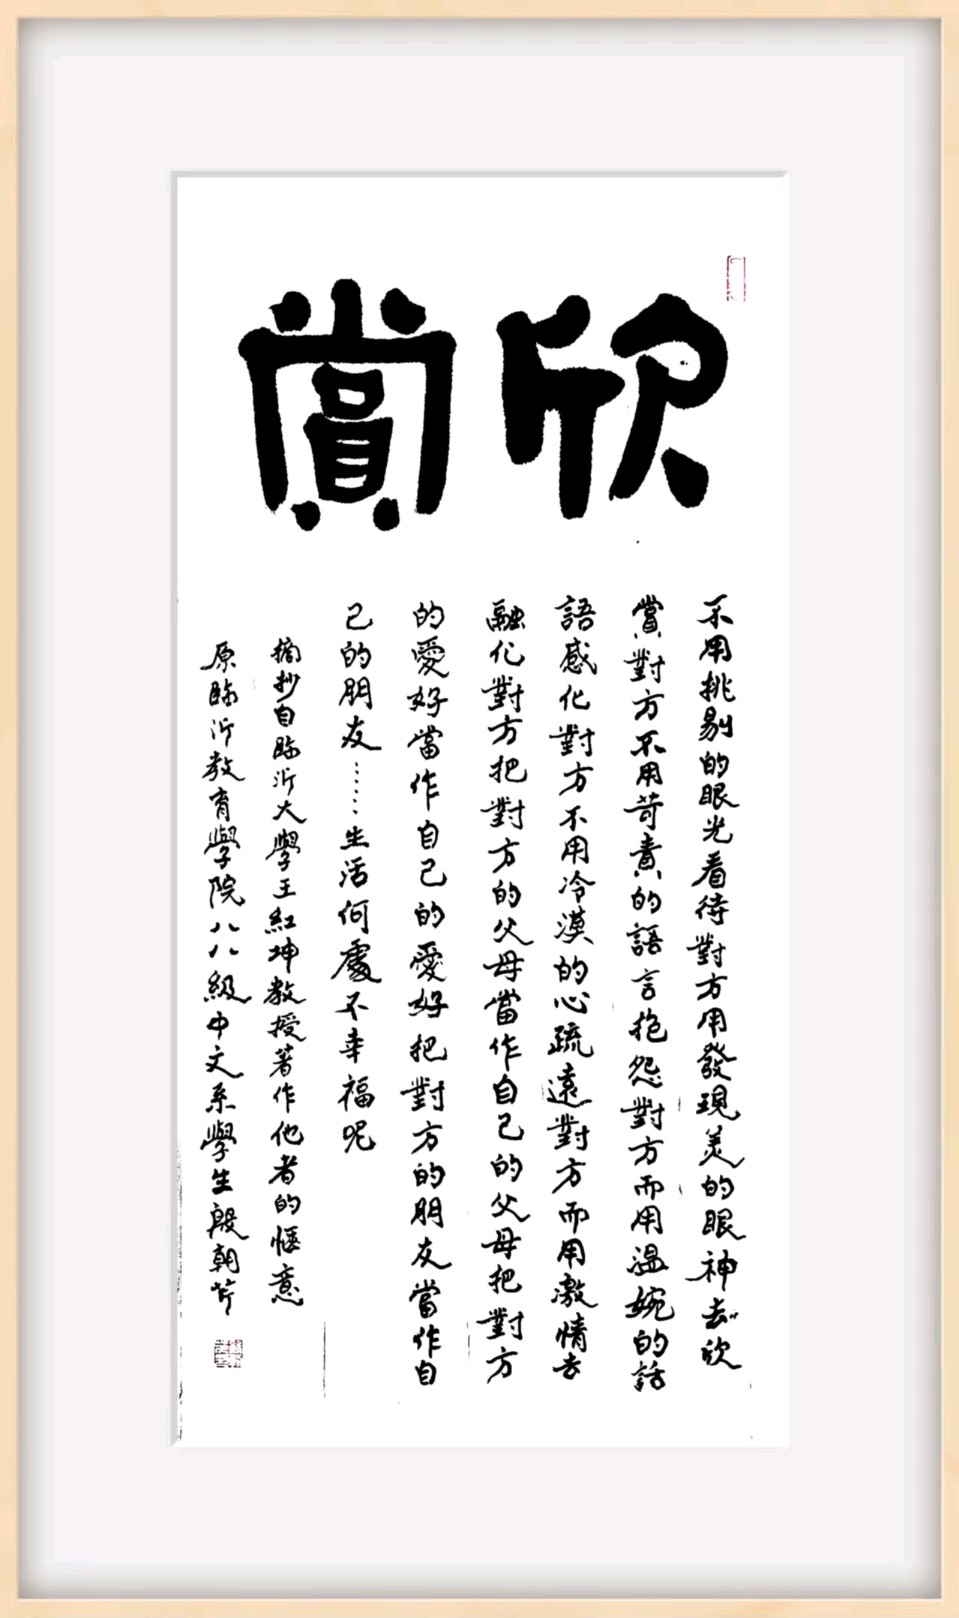 欣賞
不用挑剔的眼光看待對方用發現美的眼神去欣
賞對方不用苛責的語言抱怨對方而用溫婉的話
語感化對方不用冷漠的心疏遠對方而用激情去
融化對方把對方的父母當作自己的父母把對方
的愛好當作自己的愛好把對方的朋友當作自
己的朋友……生活何處不幸福呢
摘抄自臨沂大學王紅坤教授著作他者的愜意
原臨沂教育學院八八級中文系學生殷朝芹